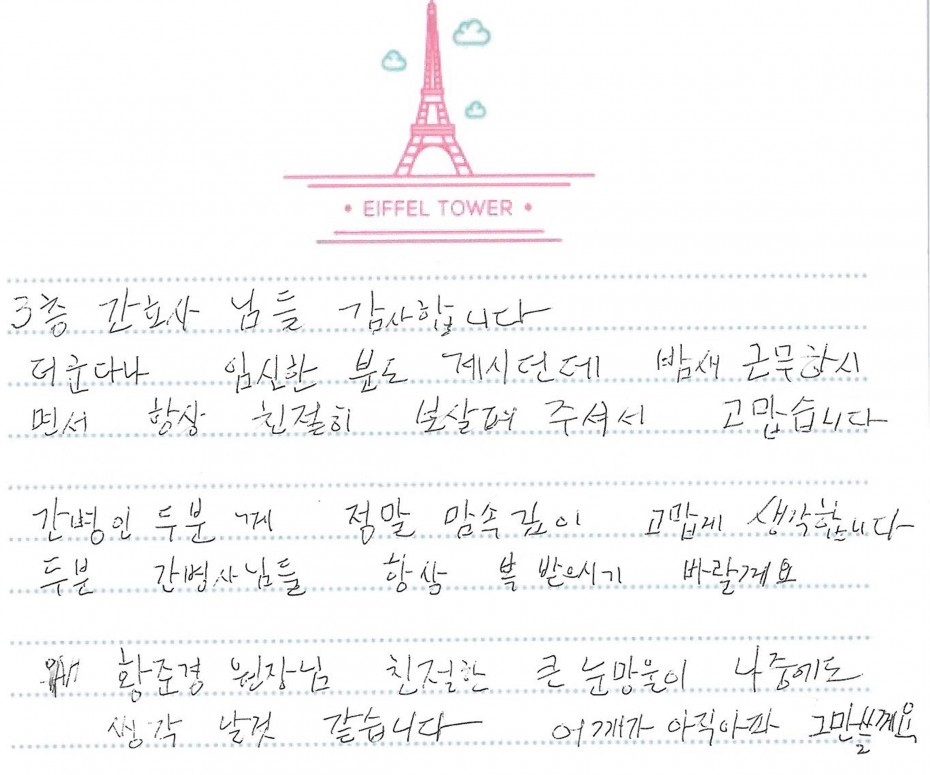 • EIFFEL TOWER •
3층 간호사 님들 감사합니다
더군다나 임신한 분도 계시던데 밤새 근무하시
면서 항상 친절히 보살펴 주셔서 고맙습니다
간병인 두분 께 정말 맘속깊이 고맙게 생각합니다
두분 간병사님들 항상 복 받으시기 바랄께요
황준경 원장님 친절한 큰 눈망울이 나중에도
생각 날것 같습니다 어깨가 아직아파 그만쓸께요